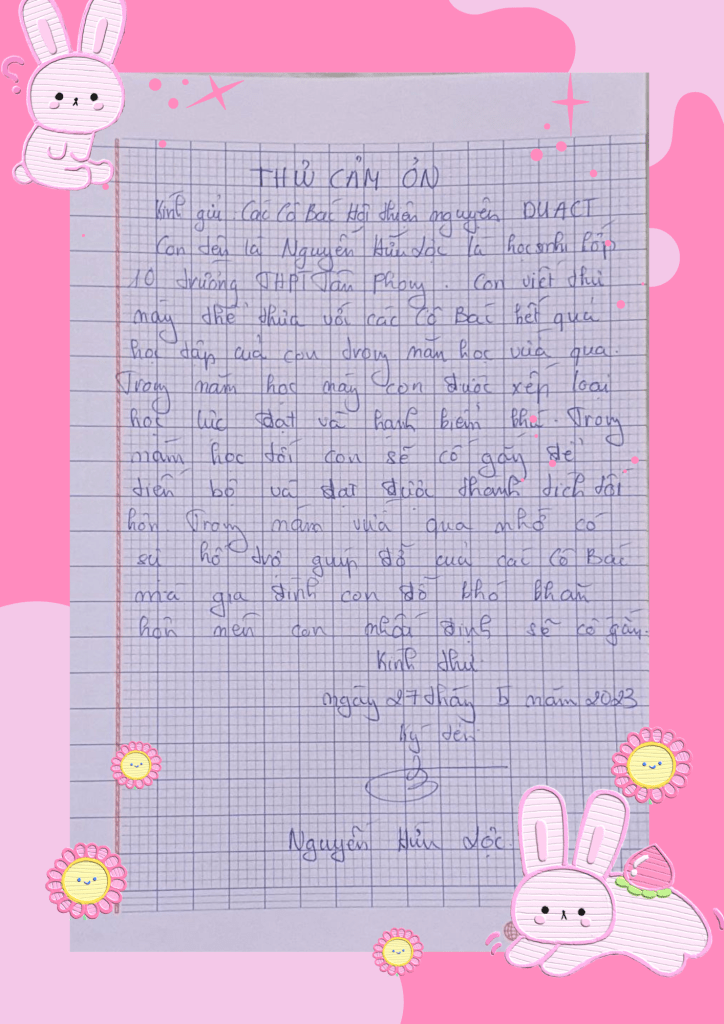 THƯ CẢM ƠN
Kính gửi Các Cô Bác Hội thiện nguyện DUACT
Con tên là Nguyễn Hữu Lộc là học sinh lớp
10 trường THPT Tân Phong. Con viết thư
này để thưa với các Cô Bác kết quả
học tập của con trong năm học vừa qua.
Trong năm học này con được xếp loại
học lực đạt và hạnh kiểm khá. Trong
năm học tới con sẽ cố gắng để
tiến bộ và đạt được thành tích tốt
hơn. Trong năm vừa qua nhờ có
sự hỗ trợ giúp đỡ của các Cô Bác
mà gia đình con đỡ khó khăn
hơn nên con nhất định sẽ cố gắng.
Kính thư
ngày 27 tháng 5 năm 2023
Ký tên
Nguyễn Hữu Lộc